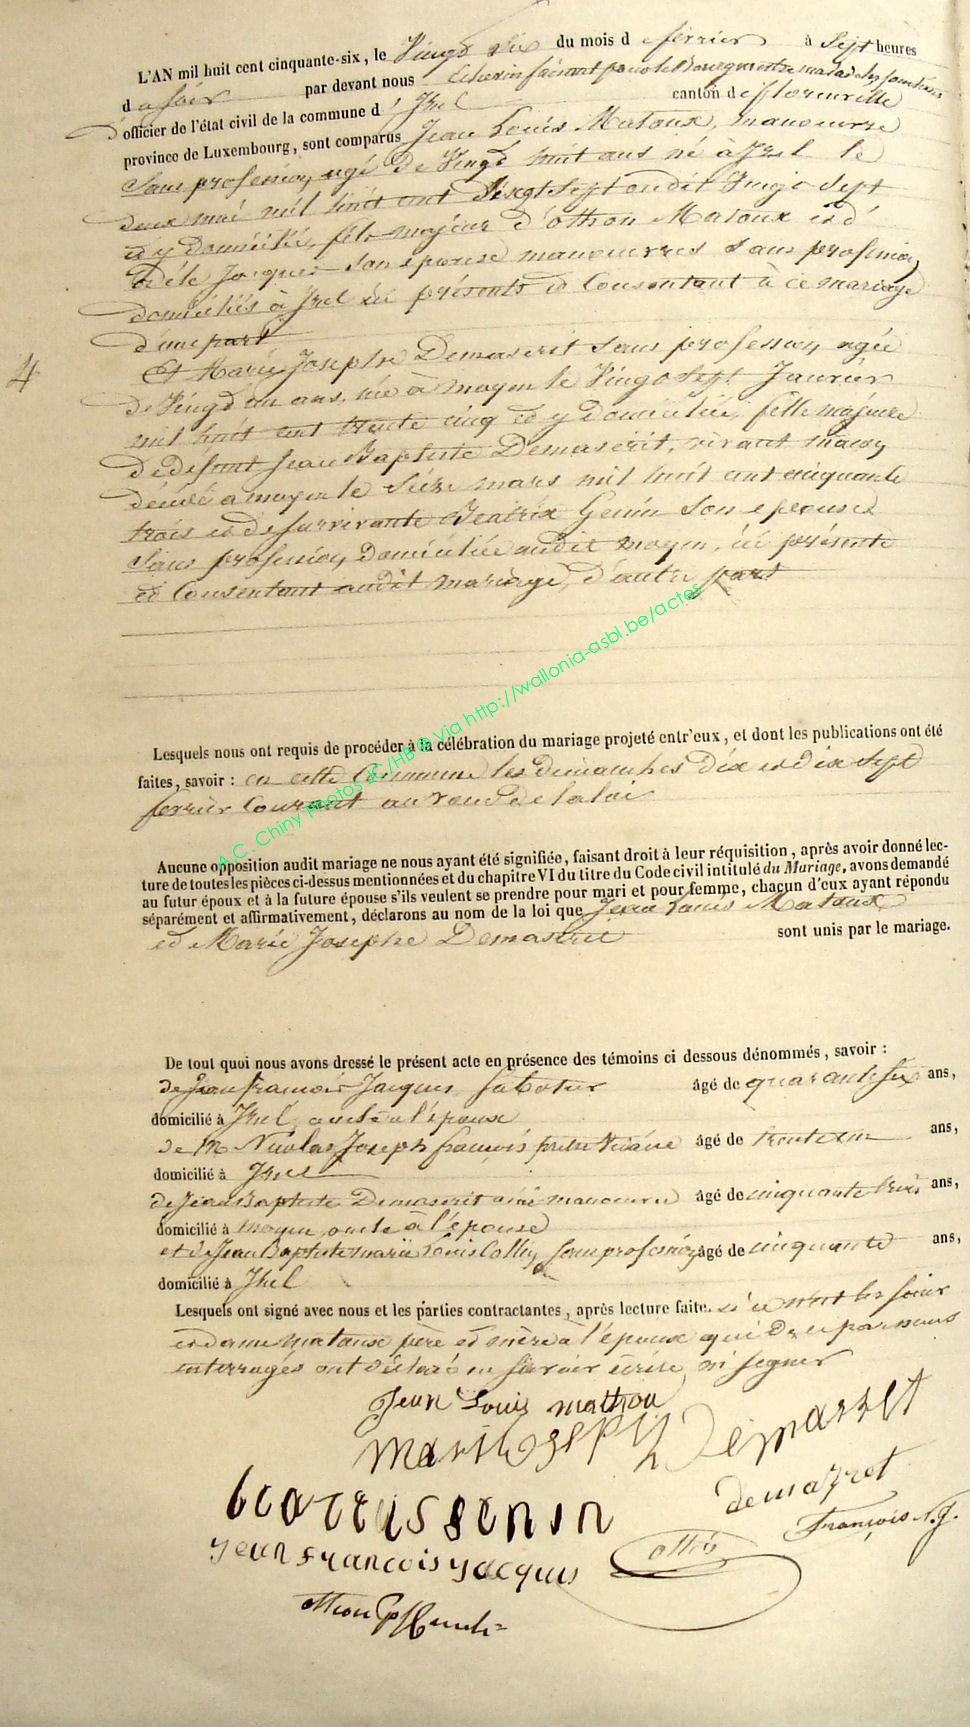 L'AN mil huit cent cinquante-six, le Vingd Six du mois d e février à Sept heures
d u soir par devant nous Echevin faisant pour le Bourgmestre malade les fonctions
d'officier de l'état civil de la commune d' Izel canton de florenville
province de Luxembourg, sont comparus Jean Louis Mataux, manoeuvre
Sans profession, agé de Vingd huit ans né à Izel le
deux mai mil huit cent Vingd Sept
et y domicilié, fils majeur d'Othon Mataux et d'
Adèle Jacques son epouse manoeuvres Sans profession,
domiciliés à Izel ici présents et Consentant à ce mariage
d'une part
Et Marie Josephe Demaseret Sans profession, agée
de Vingd un ans, née à moyen le Vingd Sept Janvier
mil huit cent trente cinq et y domiciliée, fille majeure
de défunt Jean Baptiste Demaseret, vivant maçon,
décédé a moyen le Seize mars mil huit cent cinquante
trois et de Survivante Beatrix Genin Son epouse
Sans profession, domiciliée audit moyen, ici présente
et Consentant audit mariage, d'autre part
4
A.C. Chiny Photos JC/HB © via http://wallonia-asbl.be/actes
Lesquels nous ont requis de procéder à la célébration du mariage projeté entr'eux, et dont les publications ont été
faites, savoir : en cette Commune les dimanches dix et dix Sept
fevrier Courant au voeu de la loi
Aucune opposition audit mariage ne nous ayant été signifiée, faisant droit à leur réquisition, après avoir donné lec-
ture de toutes les pièces ci-dessus mentionnées et du chapitre VI du titre du Code civil intitulé du Mariage, avons demandé
au futur époux et à la future épouse s'ils veulent se prendre pour mari et pour femme, chacun d'eux ayant répondu
séparément et affirmativement, déclarons au nom de la loi que Jean Louis Mataux
et Marie Josephe Demaseret sont unis par le mariage.
De tout quoi nous avons dressé le présent acte en présence des témoins ci dessous dénommés, savoir :
de Jean francois Jacques, Sabotier âgé de quarante six ans,
domicilié à Izel, oncle a l'époux
de Mr Nicolas Joseph françois prêtre Vicaire âgé de trente un ans,
domicilié à Izel
de Jean Baptiste Demaseret ainé manoeuvre âgé de cinquante trois ans,
domicilié à moyen, oncle à l'épouse
et de Jean Baptiste marie Louis Collin, Sans profession, âgé de cinquante ans,
domicilié à Izel
Lesquels ont signé avec nous et les parties contractantes, après lecture faite. si ce n'est les sieur
et dame mataux père et mère à l'époux qui de ce par nous
interrogés ont déclaré ne savoir écrire ni signer
Jean Louis mathou
Mari Joseph Demazret
demazret
beatris genin
François N.J.
Jean Francois Jacques